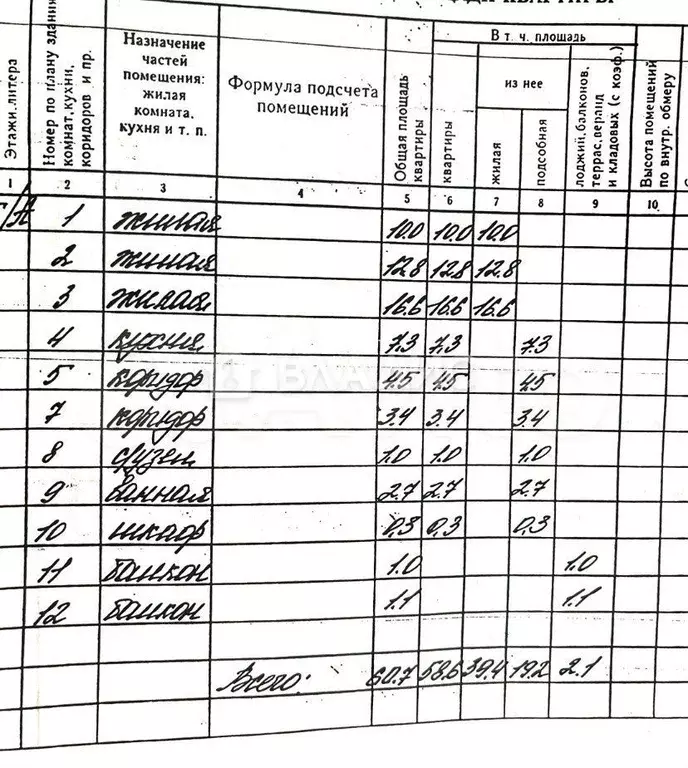 В т. ч. площадь
из нее
Этажи, литера
Номер по плану здания
комнат, кухни,
коридоров и пр.
Назначение
частей
помещения:
жилая
комната,
кухня и т. п.
Формула подсчета
помещений
Общая площадь
квартиры
квартиры
жилая
подсобная
лоджий, балконов,
террас, веранд
и кладовых (с коэф.)
Высота помещений
по внутр. обмеру
1 2 3 4 5 6 7 8 9 10
/А 1 жилая 10.0 10.0 10.0
2 жилая 12.8 12.8 12.8
3 жилая 16.6 16.6 16.6
4 кухня 7.3 7.3 7.3
5 коридор 4.5 4.5 4.5
7 коридор 3.4 3.4 3.4
8 с/узел 1.0 1.0 1.0
9 ванная 2.7 2.7 2.7
10 шкаф 0,3 0,3 0,3
11 балкон 1.0 1.0
12 балкон 1.1 1.1
Всего: 60.7 58.6 39.4 19.2 2.1